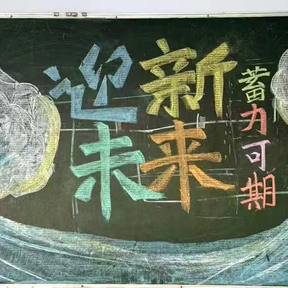 迎新
未来
蓄力可期